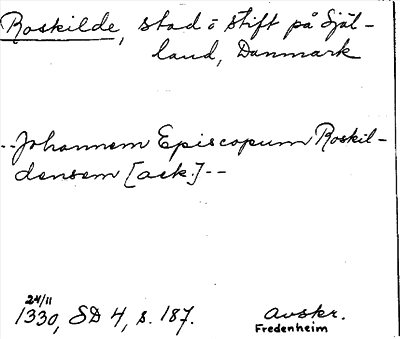 Roskilde, stad o stift på Själ-
land, Danmark
--Johannem Episcopum Roskil-
densem [ack.]--
24/11
1330, SD 4, s. 187. Avskr.
Fredenheim